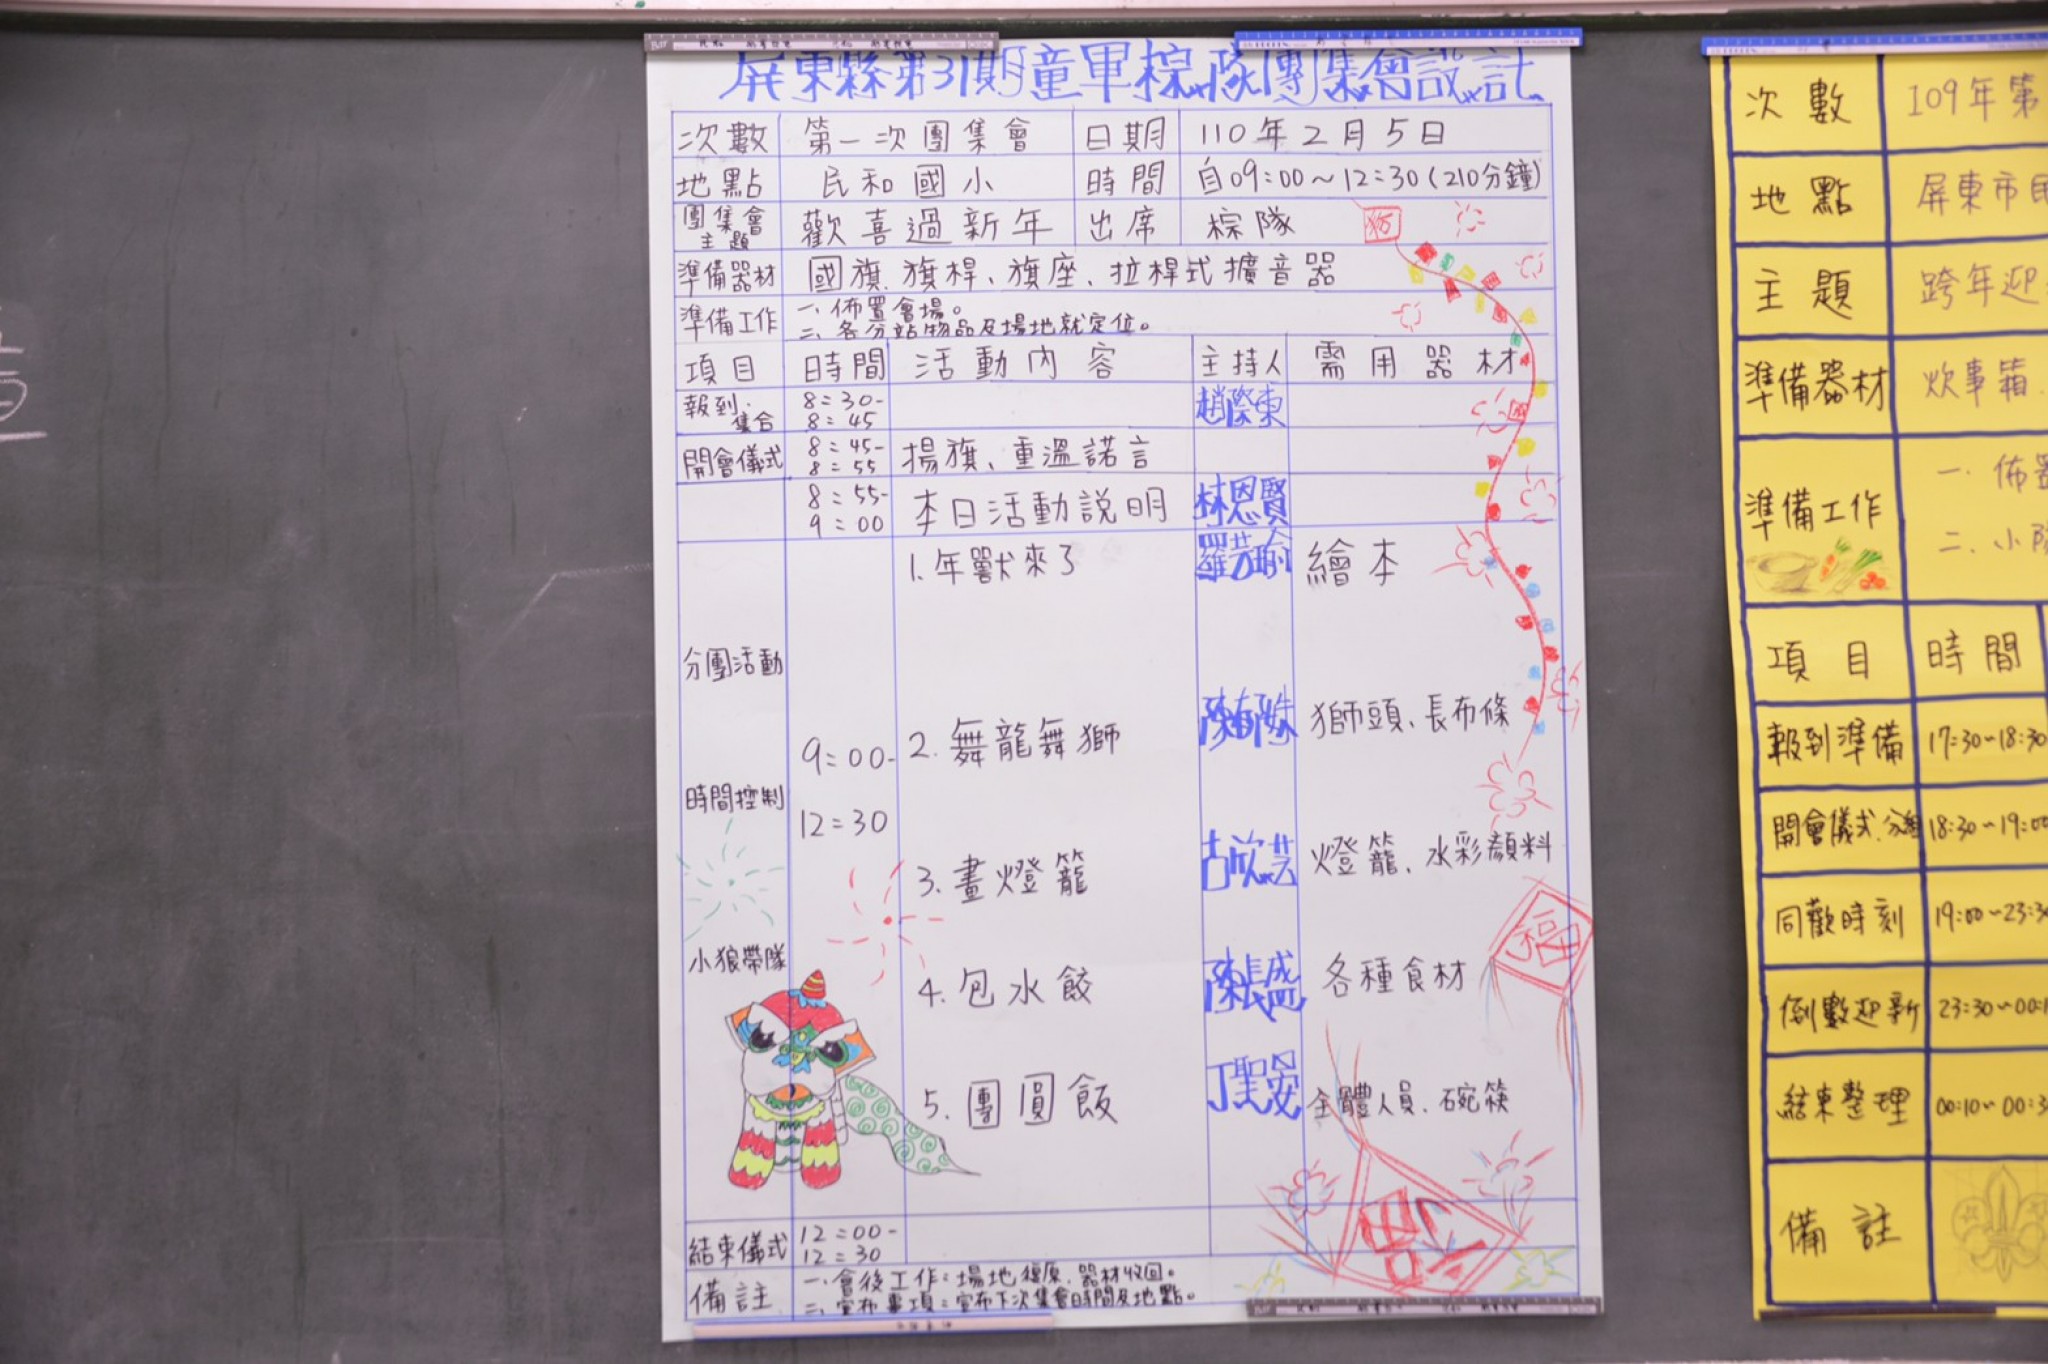 屏東縣第31期童軍棕隊團集會設計
次數 第一次團集會 日期 110年2月5日
地點 民和國小 時間 自09:00~12:30(210分鐘)
團集會主題 歡喜過新年 出席 棕隊
準備器材 國旗、旗桿、旗座、拉桿式擴音器
準備工作 一、佈置會場。
二、各分站物品及場地就定位。
項目 時間 活動內容 主持人 需用器材
報到.集合 8:30-8:45 趙際東
開會儀式 8:45-8:55 揚旗、重溫諾言
8:55-9:00 本日活動說明 林恩賢
分團活動
時間控制
小狼帶隊
9:00-
12:30
1.年獸來了 繪本
2.舞龍舞獅 獅頭、長布條
3.畫燈籠 古欣芸 燈籠、水彩顏料
4.包水餃 陳長盛 各種食材
5.團圓飯 丁聖晏 全體人員、碗筷
福
結束儀式 12:00-12:30
備註 一、會後工作:場地復原、器材收回。
二、宣布事項:宣布下次集會時間及地點。
次數 109年第
地點 屏東市民
主題 跨年迎
準備器材 炊事箱、
準備工作 一、佈置
二、小隊
項目 時間
報到準備 17:30~18:30
開會儀式、分組 18:30~19:00
同歡時刻 19:00~23:30
倒數迎新 23:30~00:1
結束整理 00:10~00:3
備註